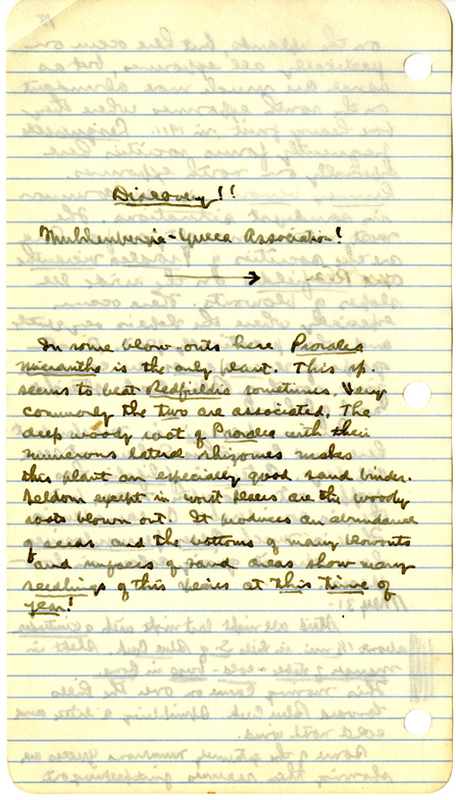 Discovery!!
Muhlenbergia-Yucca Association!
In some blow-outs here Psoralea
micrantha is the only plant. This sp.
seems to beat Redfieldia sometimes. Very
commonly the two are associated. The
deep woody root of Psoralea with their
numerous lateral rhizomes makes
this plant an especially good sand binder.
Seldom except in worst places are the woody
roots blown out. It produces an abundance
of seeds and the bottoms of many blowouts
and surfaces of sand areas show many
seedlings of this species at this time of
year!